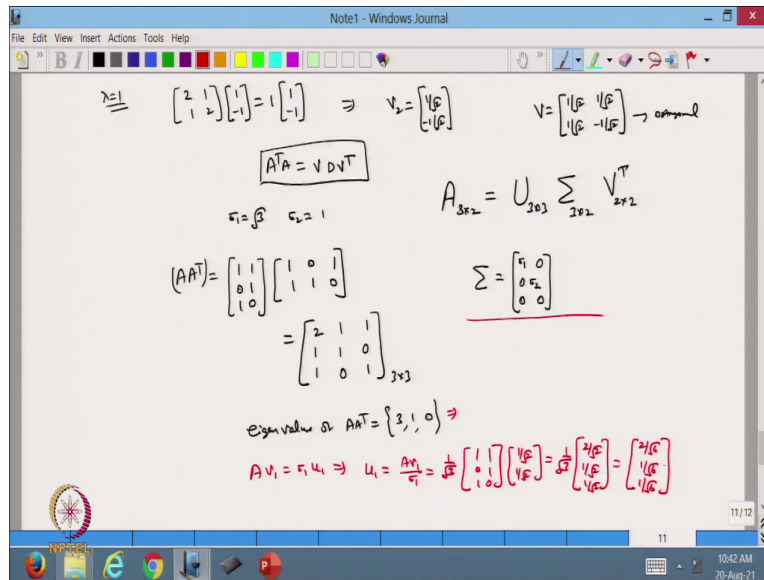 Note1 - Windows Journal
File Edit View Insert Actions Tools Help
λ=1 [2 1; 1 2] [1; -1] = 1 [1; -1] ⇒ V₂ = [1/√2; -1/√2] V = [1/√2 1/√2; 1/√2 -1/√2] → orthogonal
AᵀA = V D Vᵀ
A₃ₓ₂ = U₃ₓ₃ Σ₃ₓ₂ Vᵀ₂ₓ₂
σ₁ = √3 σ₂ = 1
(AAᵀ) = [1 1; 0 1; 1 0] [1 0 1; 1 1 0] Σ = [σ₁ 0; 0 σ₂; 0 0]
= [2 1 1; 1 1 0; 1 0 1]₃ₓ₃
eigen values of AAᵀ = {3, 1, 0} ⇒
A V₁ = σ₁ u₁ ⇒ u₁ = AV₁/σ₁ = 1/√3 [1 1; 0 1; 1 0] [1/√2; 1/√2] = 1/√3 [2/√2; 1/√2; 1/√2] = [2/√6; 1/√6; 1/√6]
NPTEL
11/12
11
10:42 AM
20-Aug-21